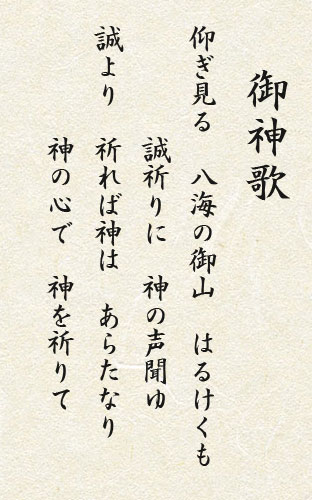 御神歌
仰ぎ見る 八海の御山 はるけくも
誠祈りに 神の声聞ゆ
誠より 祈れば神は あらたなり
神の心で 神を祈りて